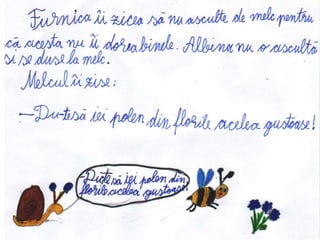 Furnica îi zicea să nu asculte de melc pentru
că acesta nu îi dorea binele. Albina nu o ascultă
și se duse la melc.
Melcul îi zise:
-Du-te să iei polen din florile acelea gustoase!
-Du-te să iei polen din
florile acelea gustoase!